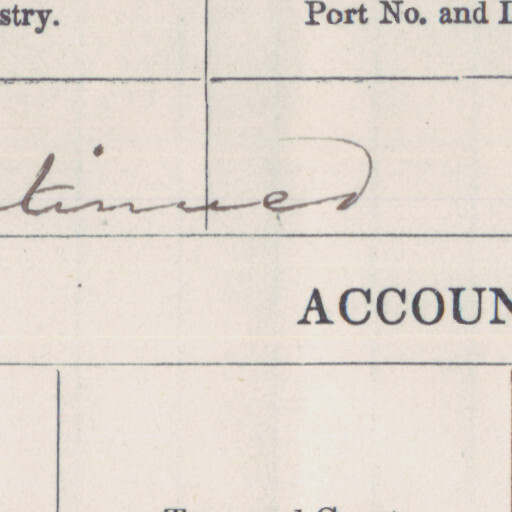 stry. Port No. and
tinued
ACCOUN